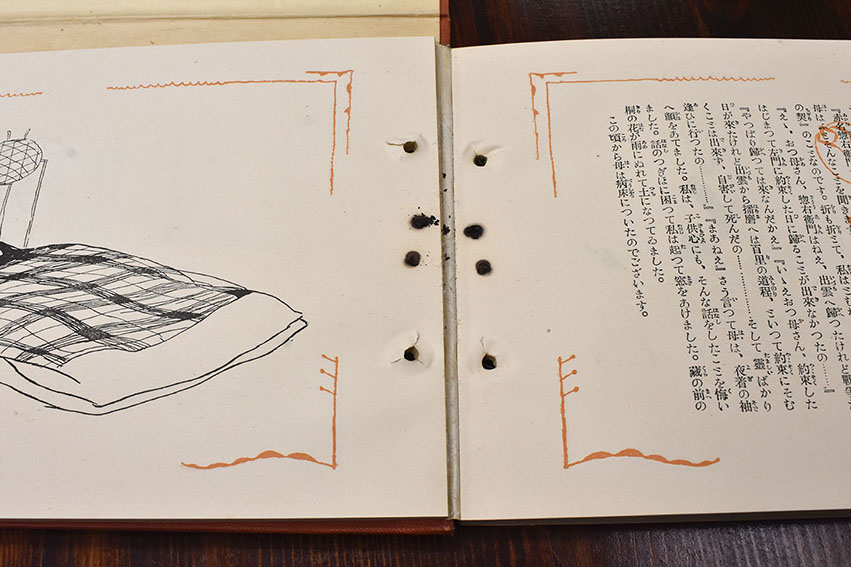 『赤名惣右衛門
母は そんなことを聞きま
の契』のことなのです。折も折とて、私はとむ
『えゝ、おつ母さん、惣右衛門はねえ、出雲へ歸つたけれど戰爭
はじまつて左門に約束した日に歸ることが出來なかつたの……』
『やつぱり歸つては來なんだかえ』『いゝえおつ母さん、約束した
日が來たけれど出雲から播磨へは百里の道程、といつて約束にそむ
くことは出來ず、自害して死んだの…………そして靈ばかり
逢ひに行つたの………』『まあねえ』さう言つて母は、夜着の袖
へ顏をあてました。私は、子供心にも、そんな話をしたことを悔い
ました。話のつぎほに困つて私は起つて窓をあけました。藏の前の
桐の花が雨にぬれて土になつてゐました。
この頃から母は病床についたのでございます。